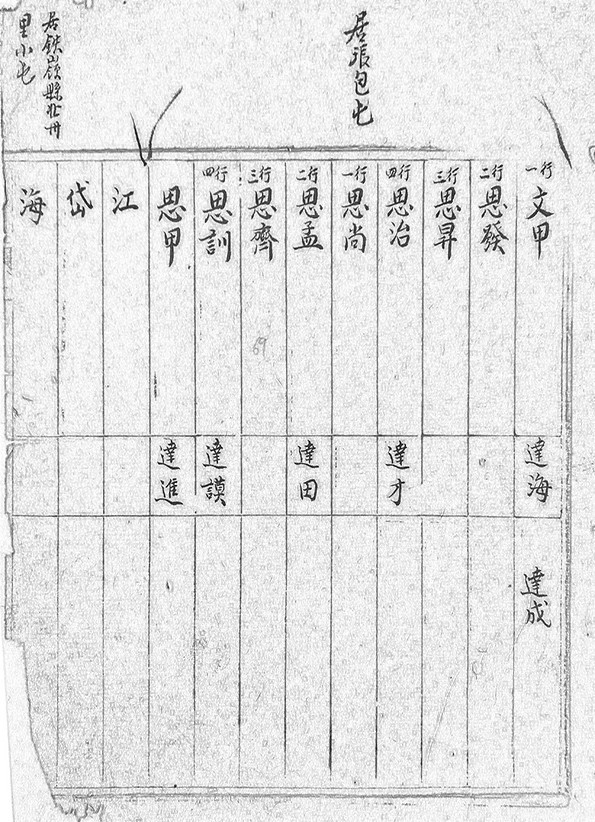 居張包屯
居鉄嶺縣
里小屯
一行 文甲 達海 達成
二行 思發
三行 思昇
四行 思治 達才
一行 思尚
二行 思孟 達田
三行 思齊
四行 思訓 達謨
思甲 達進
江
岱
海
69